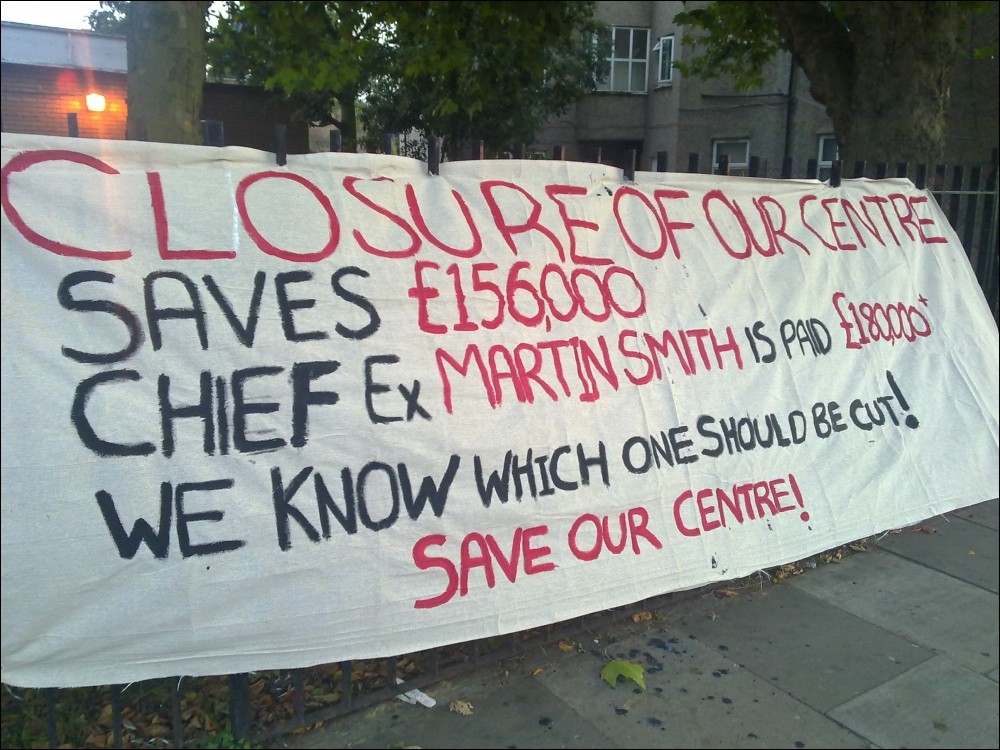 CLOSURE OF OUR CENTRE
SAVES £156,000
CHIEF Ex MARTIN SMITH IS PAID £180,000+
WE KNOW WHICH ONE SHOULD BE CUT!
SAVE OUR CENTRE!